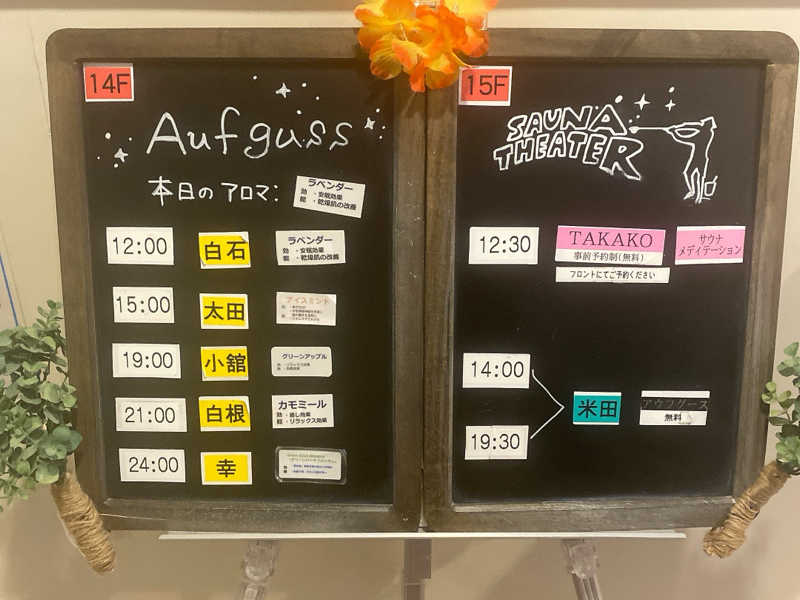 14F
Aufguss
本日のアロマ:
ラベンダー
効能
・安眠効果
・乾燥肌の改善
12:00
白石
ラベンダー
効能
・安眠効果
・乾燥肌の改善
15:00
太田
アイスミント
19:00
小舘
グリーンアップル
21:00
白根
カモミール
効能
・癒し効果
・リラックス効果
24:00
幸
15F
SAUNA
THEATER
12:30
TAKAKO
事前予約制(無料)
フロントにてご予約ください
サウナ
メディテーション
14:00
19:30
米田
アウフグース
無料